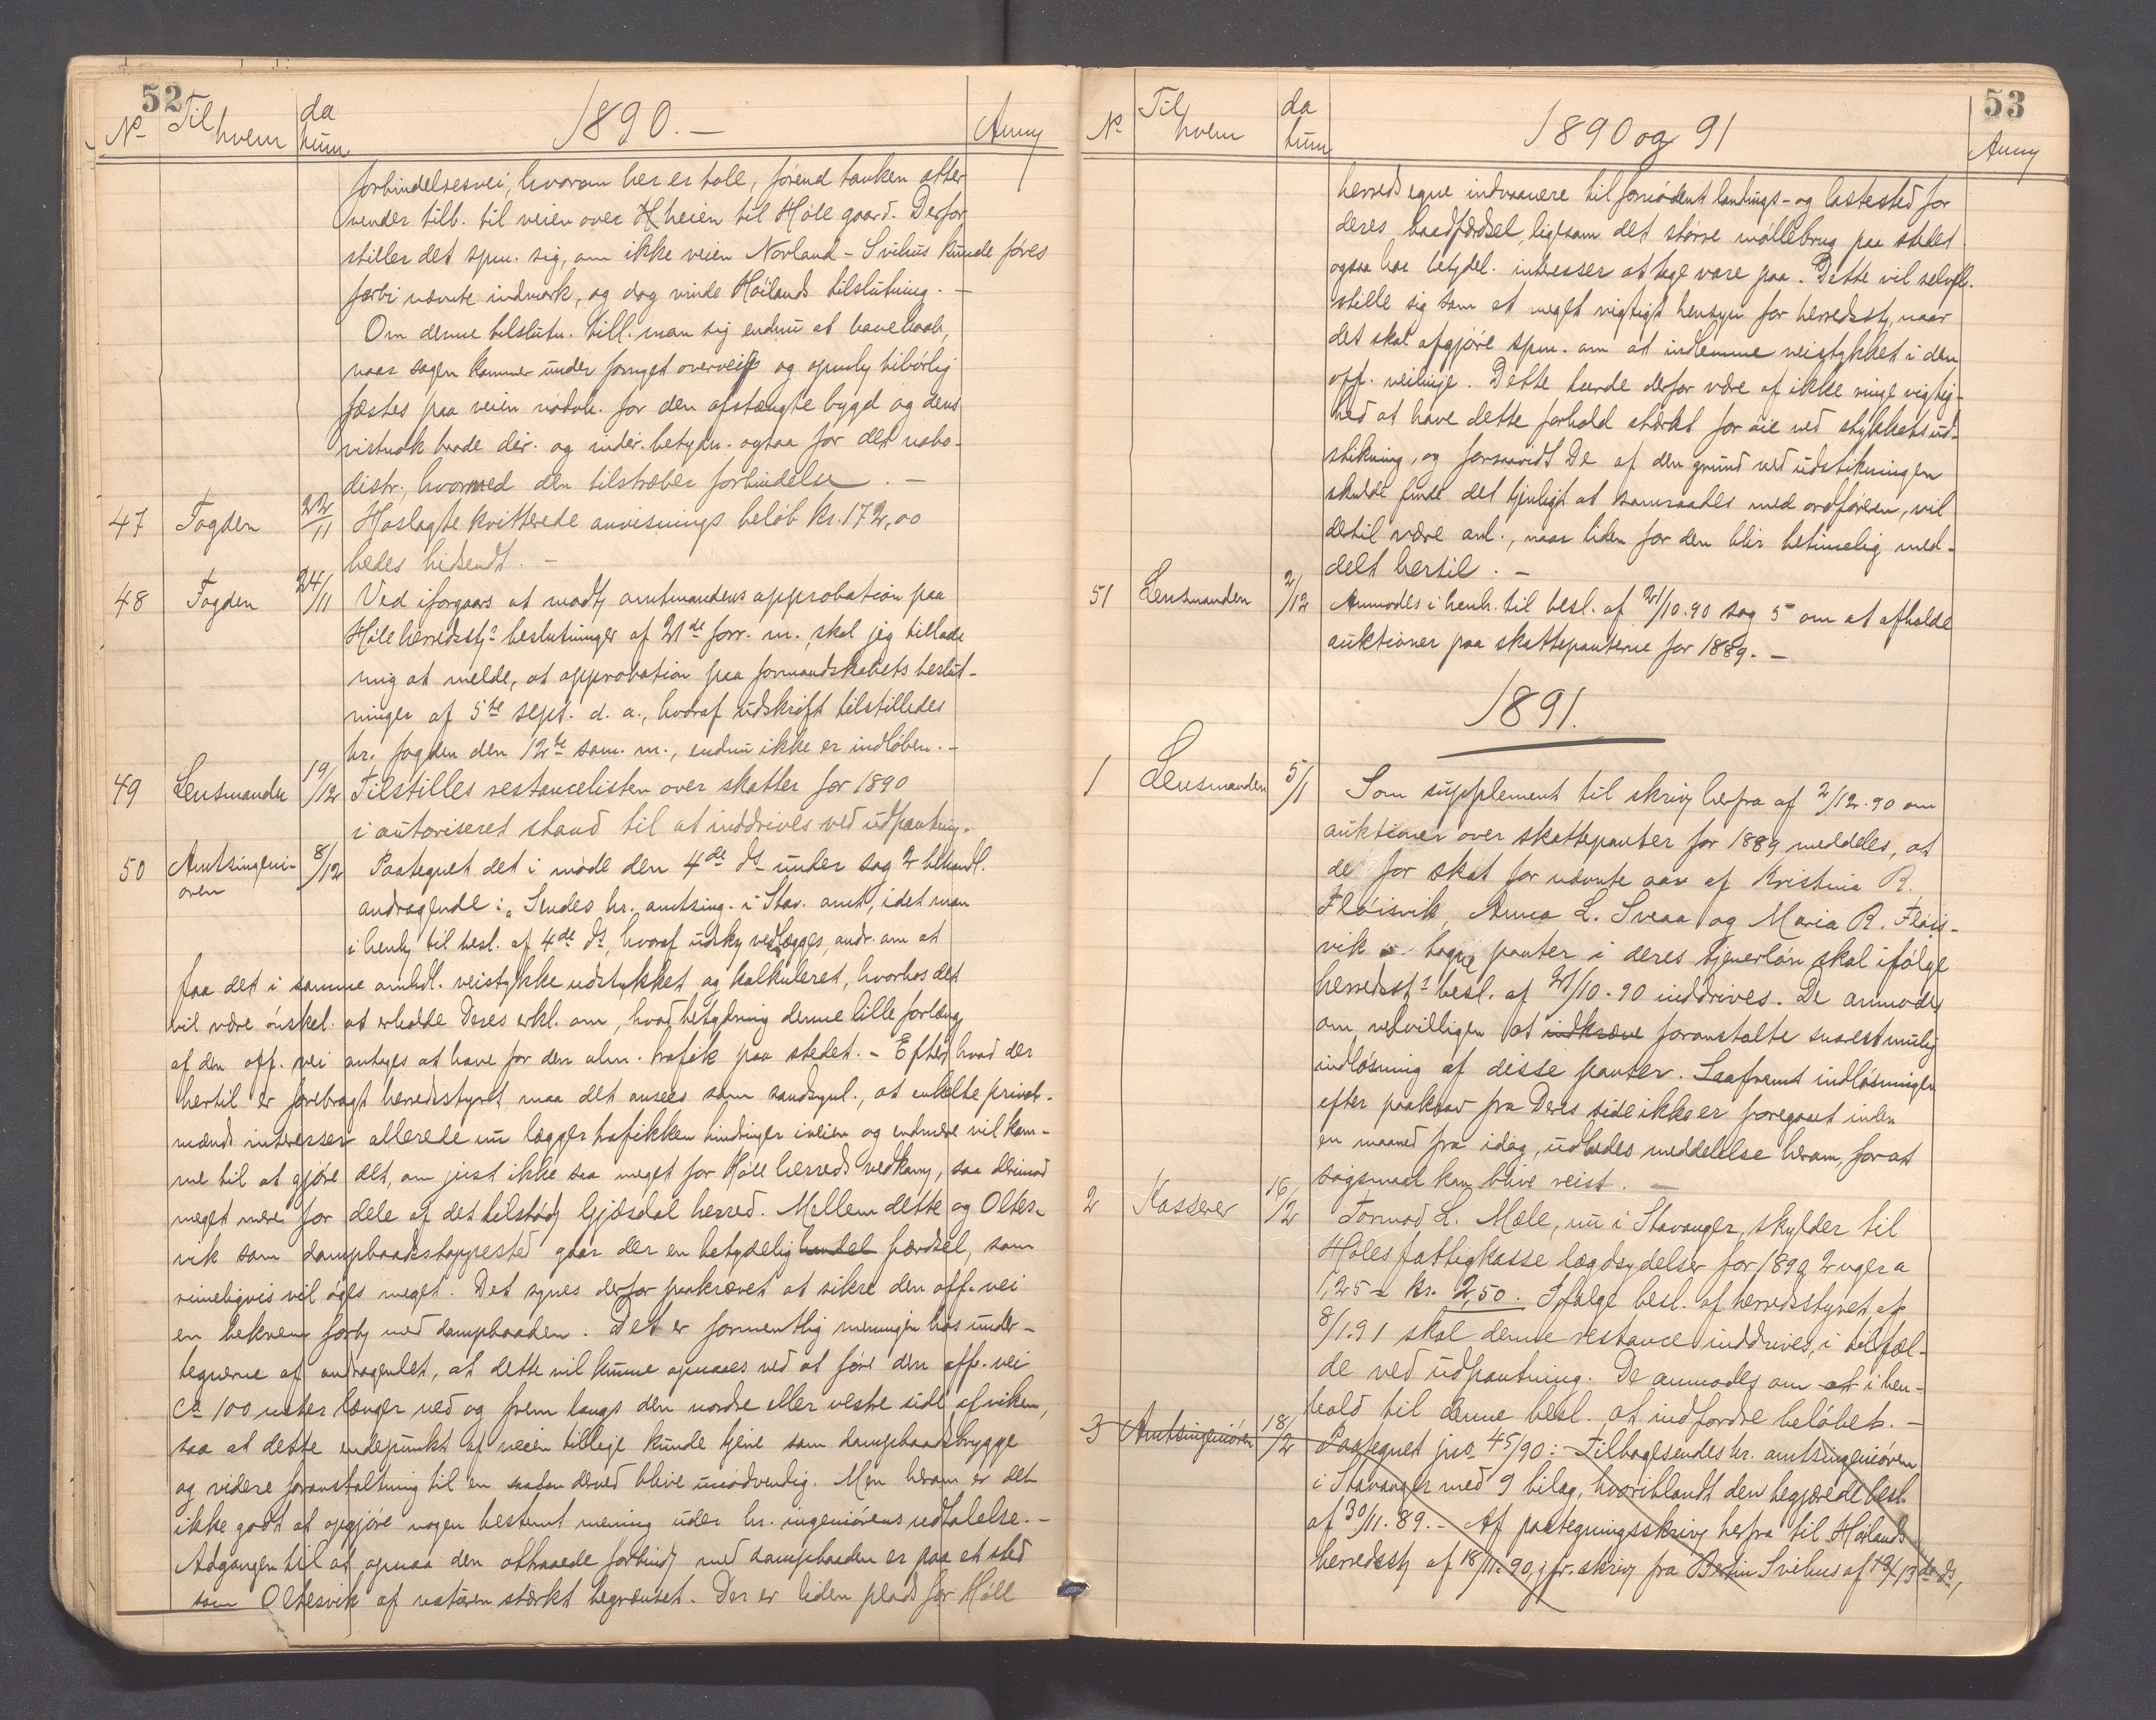 52
No Til hvem da tum 1890.— Anm
forbindelsesvei, hvorom her er tale, førend tanken atter
vender tilb. til veien over H heien til Høle gaard. Derfor
stiller det spm. sig, om ikke veien Norland - Svihus kunde føres
forbi nævnte indmark, og dog vinde Høilands tilslutning. —
Om denne tilslutn. till. man sig endnu at have haab,
naar sagen kommer under fornyet overveielse og opmh tilbørlig
fæstes paa veien nødv. for den afstængte bygd og dens
vistnok baade dir. og indir. betydn. ogsaa for det nabo-
distr., hvormed den tilstræber forbindelse. —
47 Fogden 22/11 Hoslagte kvitterede anvisnings beløb kr. 172,00
bedes hidsendt. —
48 Fogden 24/11 Ved iforgaars at modtg amtmandens approbation paa
Høle herredssts beslutninger af 21de forr. m., skal jeg tillade
mig at melde, at approbation paa formandskabets beslut-
ninger af 5te sept. d. a., hvoraf udskrift tilstilledes
hr. fogden den 12te sam. m., endnu ikke er indløben. —
49 Lensmanden 19/12 Tilstilles restancelisten over skatter for 1890
i autoriseret stand til at inddrives ved udpantning.
50 Amtsingeni-
øren 8/12 Paategnet det i møde den 4de ds under sag 2 behandl.
andragende: „Sendes hr. amtsing. i Stav. amt, idet man
i henh til besl. af 4de ds, hvoraf udskr vedlægges, andr. om at
faa det i samme omhdl. veistykke udstukket og kalkuleret, hvorhos det
vil være ønskel. at erholde Deres erkl. om, hvad betydning denne lille forlæng
af den off. vei antages at have for den alm. trafik paa stedet. — Efter hvad der
hertil er forebragt herredsstyret maa det ansees som sandsynl., at enkelte privat-
mænds interesser allerede nu lægger trafikken hindringer iveien og endmere vil kom-
me til at gjøre det, om just ikke saa meget for Høle herreds vedkomg, saa derimod
meget mere for dele af det tilstødg Gjæsdal herred. Mellem dette og Oltes-
vik som dampbaadstoppested gaar der en betydelig handel færdsel, som
rimeligvis vil øges meget. Det synes derfor paakrævet at sikre den off. vei
en bekvem forbg med dampbaaden. Det er formentlig meningen hos under-
tegnerne af andragendet, at dette vil kunne opnaaes ved at føre den off. vei
ca 100 meter længer ned og frem langs den nordre eller vestre side af viken,
saa at dette endepunkt af veien tillige kunde tjene som dampbaadsbrygge
og videre foranstaltning til en saadan derved blive unødvendig. Men herom er det
ikke godt at opgjøre nogen bestemt mening uden hr. ingeniørens udtalelse. —
Adgangen til at opnaa den attraaede forbindg med dampbaaden er paa et sted
som Oltesvik af naturen stærkt begrænset. Der er liden plads for Høle
53
No Til hvem da tum 1890 og 91 Anm
herreds egne indvaanere til fornødent landings- og lastested for
deres baadfærdsel, ligesom det større møllebrug paa stedet
ogsaa har betydel. interesser at tage vare paa. Dette vil selvføl.
stille sig som et meget vigtigt hensyn for herredsst, naar
det skal afgjøre spm. om at indlemme veistykket i den
off. veilinje. Dette turde derfor være af ikke ringe vigtig-
hed at have dette forhold stærkt for øie ved stykkets ud-
stikning, og forsaavidt De af den grund ved udstikningen
skulde finde det tjenligt at samraades med ordføreren, vil
dertil være anl., naar tiden for den blir betimelig med-
delt hertil. —
51 Lensmanden 2/12 Anmodes i henh. til besl. af 21/10.90 sag 5 om at afholde
auktioner paa skattepanterne for 1889. —
1891.
1 Lensmanden 5/1 Som supplement til skriv herfra af 2/12.90 om
auktioner over skattepanter for 1889 meddeles, at
de for skat for nævnte aar af Kristina R.
Fløisvik, Anna L. Svaa og Maria R. Fløis-
vik tagne panter i deres tjenerløn skal ifølge
herredssts besl. af 21/10.90 inddrives. De anmodes
om velvilligen at indkræve foranstalte snarest mulig
indløsning af disse panter. Saafremt indløsningen
efter paakrav fra Deres side ikke er foregaaet inden
en maaned fra idag, udbedes meddelelse herom, for at
søgsmaal kan blive reist. —
2 Kasserer 16/2 Tormod L. Mæle, nu i Stavanger, skylder til
Høles fattigkasse lægdsydelser for 1890 2 uger a
1,25 = kr. 2,50. Ifølge besl. af herredsstyret af
8/1.91 skal denne restance inddrives, i tilfæl-
de ved udpantning. De anmodes om at i hen-
hold til denne besl. at indfordre beløbet. —
3 Amtsingeniøren 18/2 Paategnet jno 45/90: Tilbagesendes hr. amtsingeniøren
i Stavanger med 9 bilag, hvoriblandt den begjærede besl.
af 30/11.89. — Af paategningsskriv herfra til Høilands
herredsst af 18/11.90, jfr. skriv fra Bertin Svihus af 13de ds,